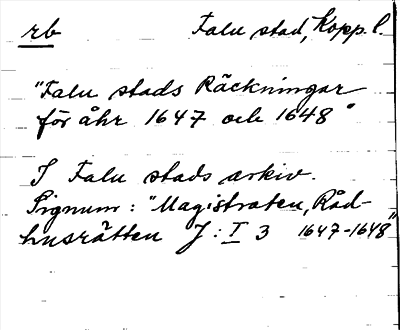 rb Falu stad, Kopp. l.
"Falu stads Räckningar
för åhr 1647 och 1648"
I Falu stads arkiv.
Signum: "Magistraten, Råd-
husrätten J: I 3 1647-1648"